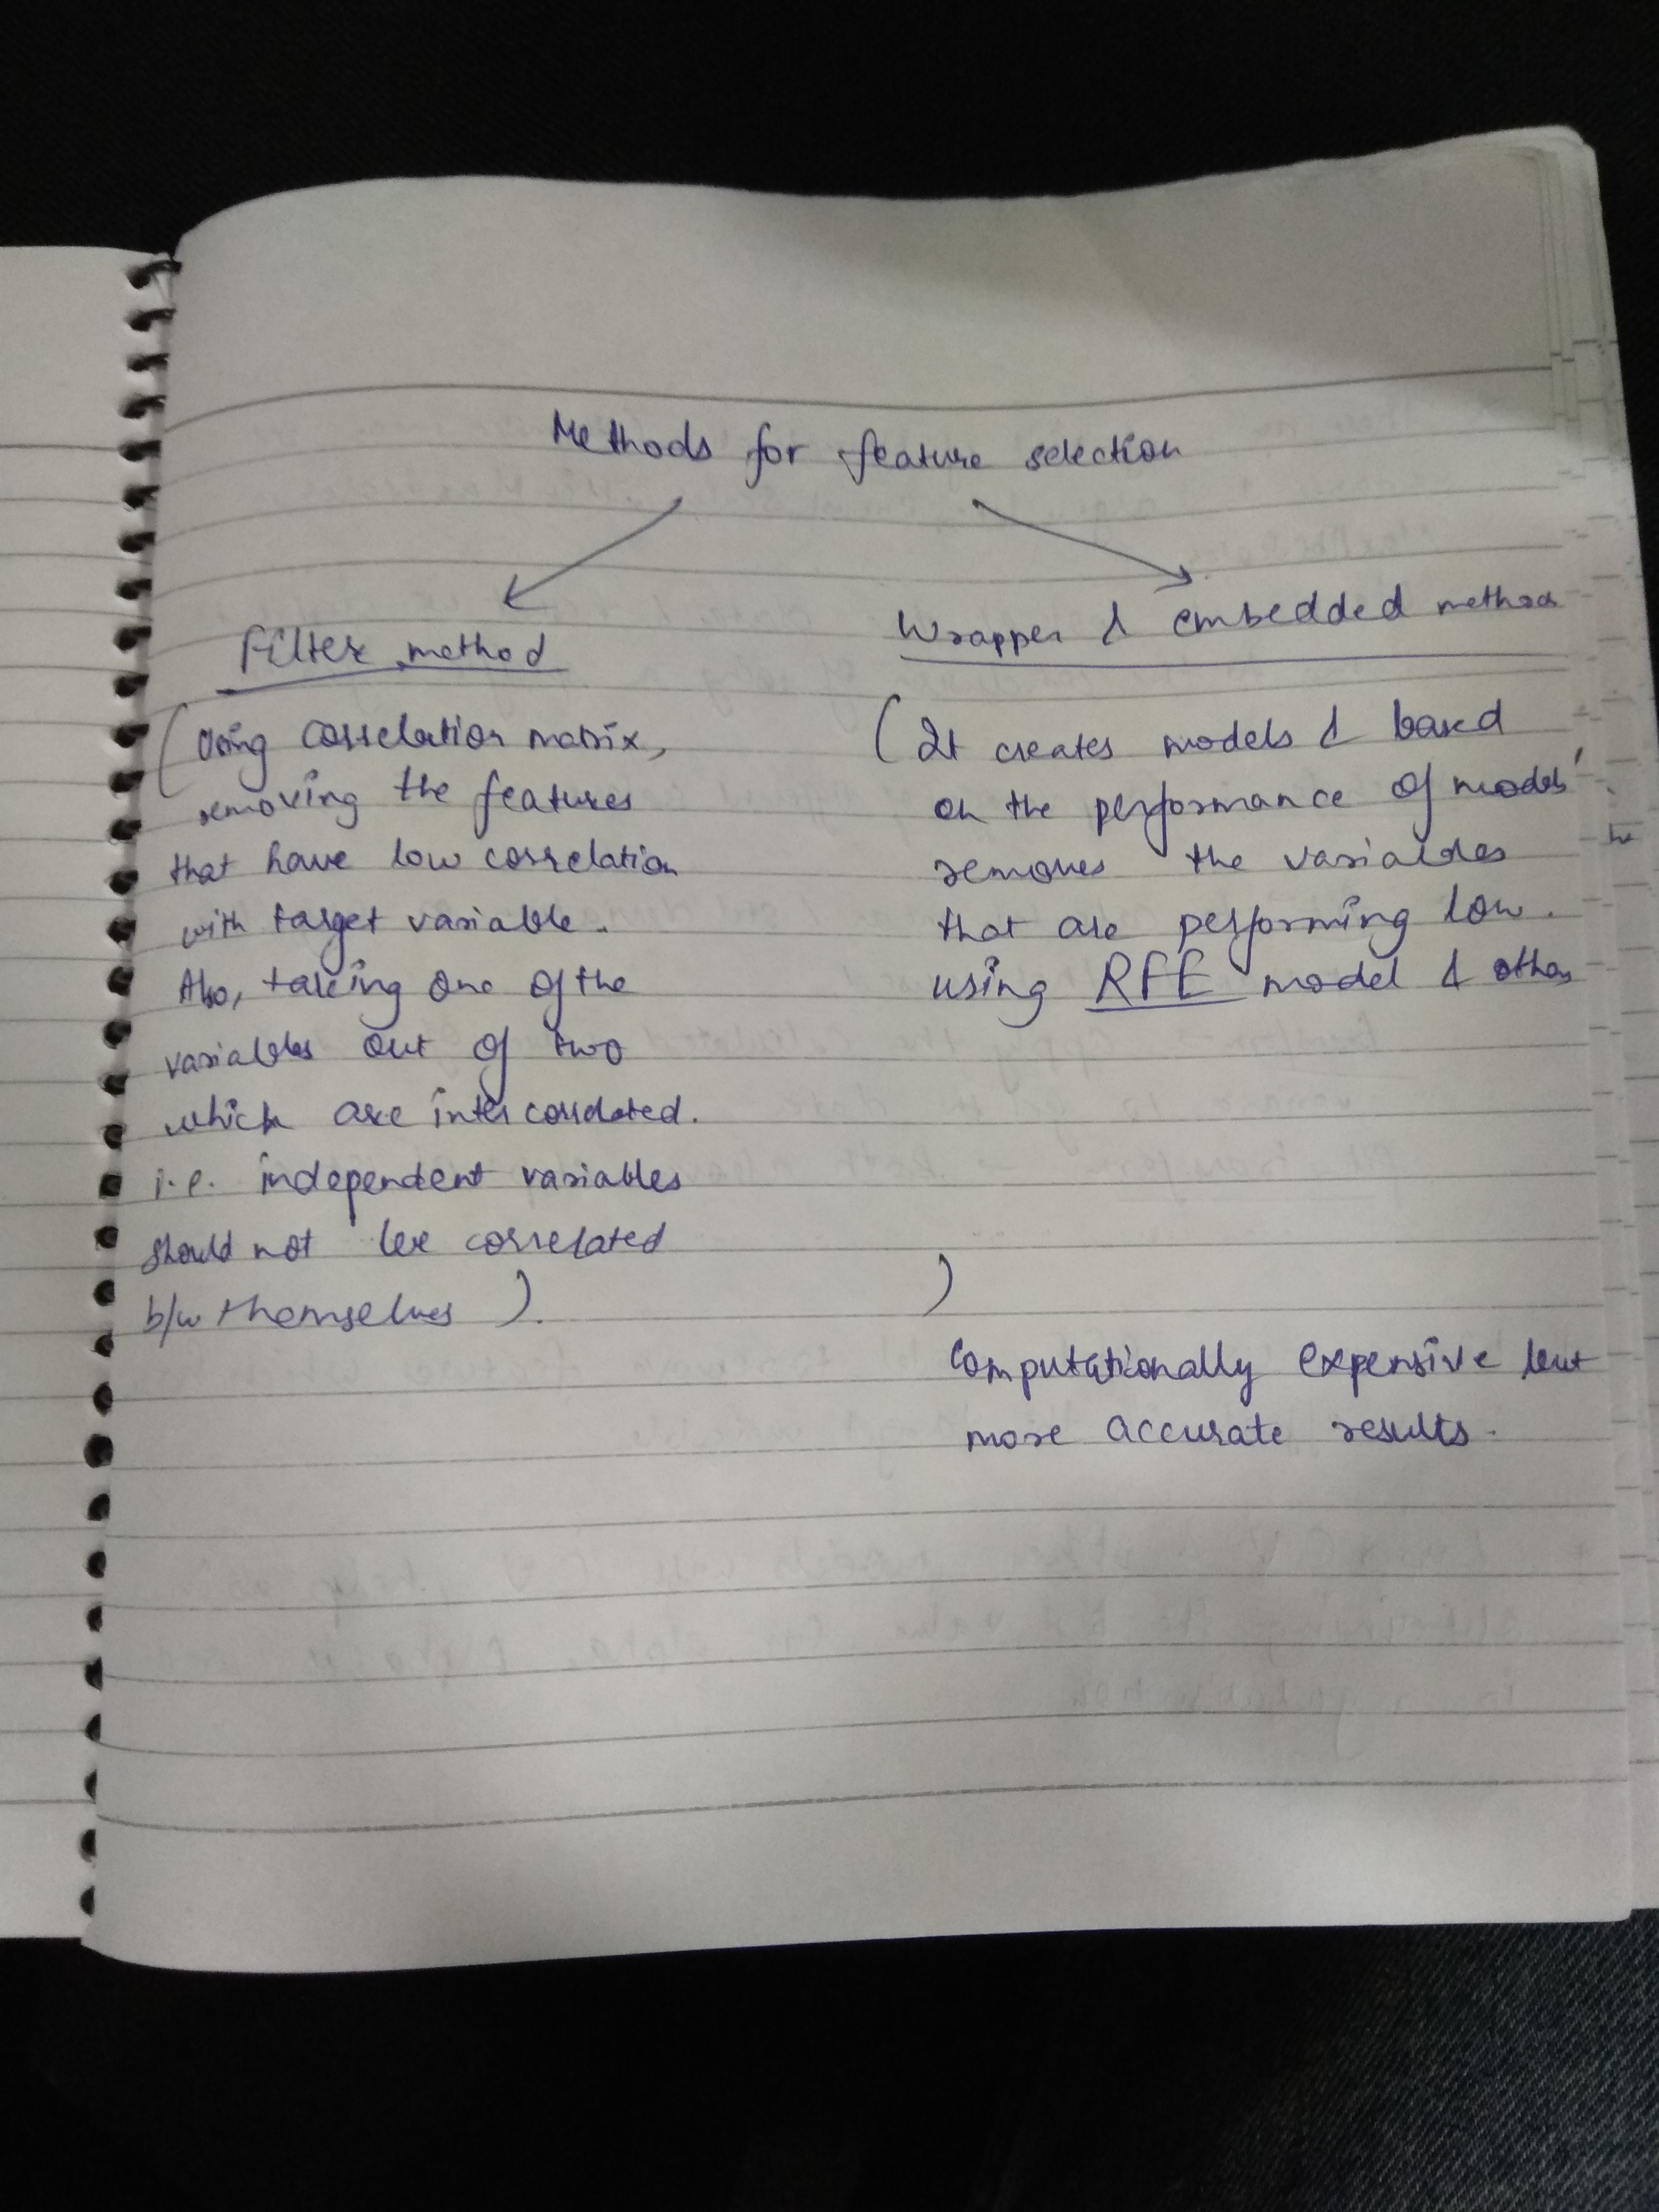 Methods for feature selection
Filter method
(Using correlation matrix,
removing the features
that have low correlation
with target variable.
Also, taking one of the
variables out of two
which are inter correlated.
i.e. independent variables
should not be correlated
b/w themselves ).
Wrapper & embedded method
(It creates models & based
on the performance of models'
removes the variables
that are performing low.
using RFE model & other
)
Computationally expensive but
more accurate results.